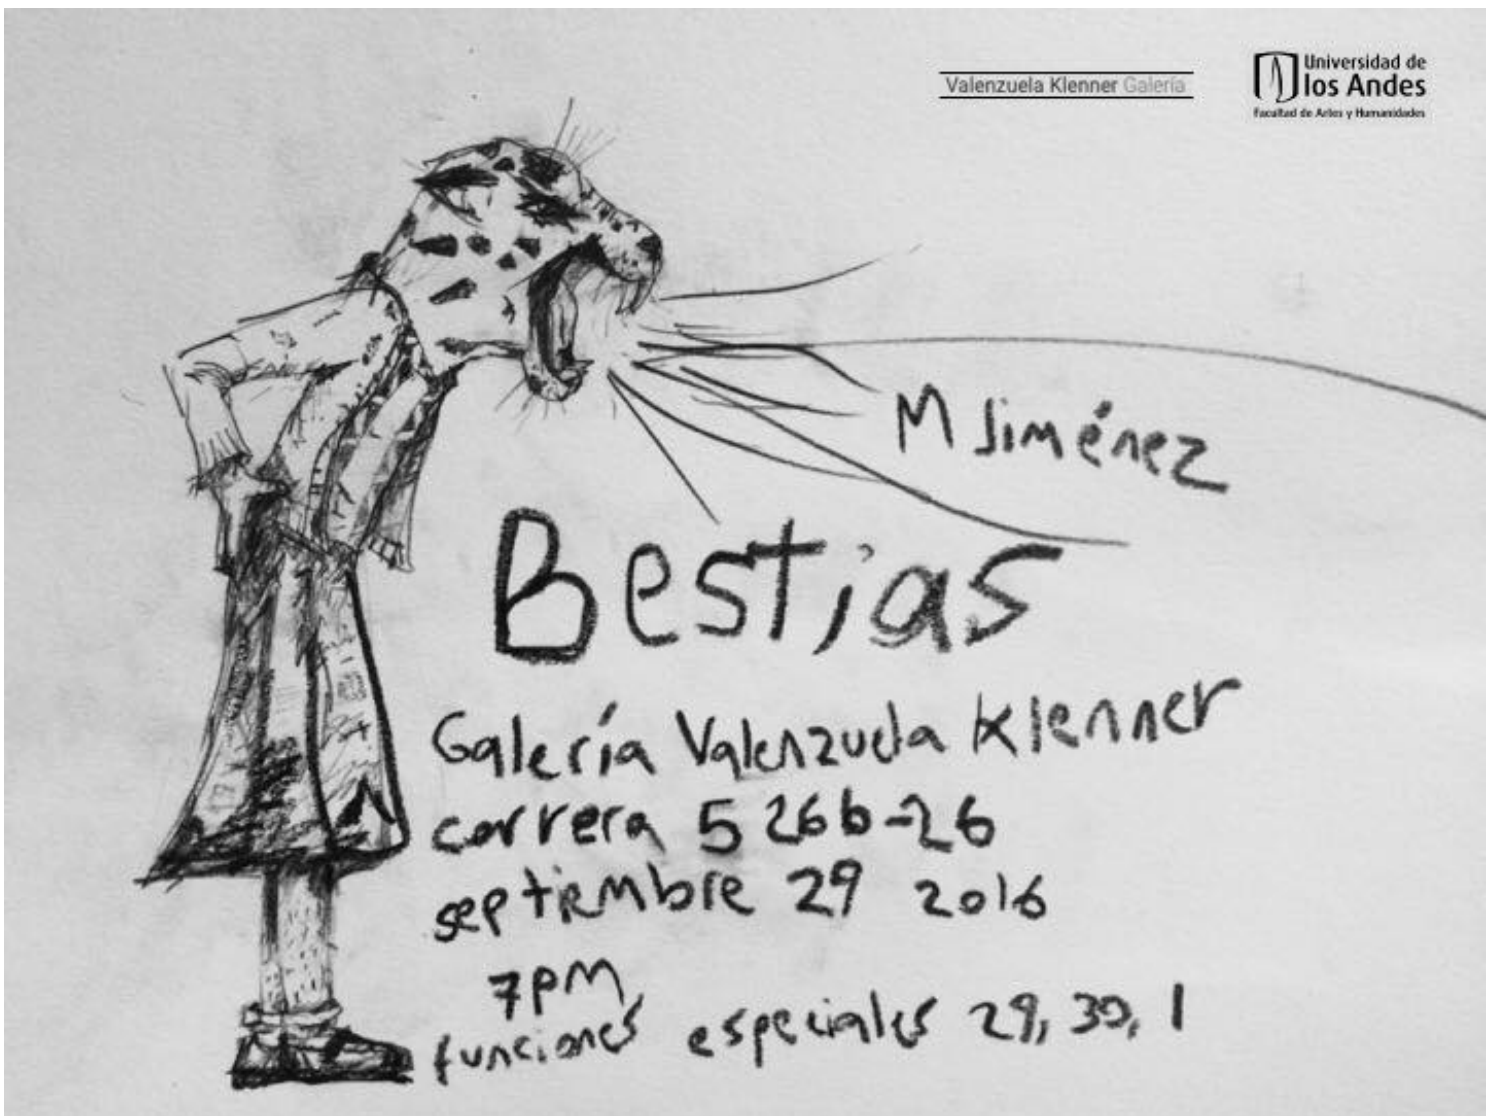 Valenzuela Klenner Galería
Universidad de
los Andes
Facultad de Artes y Humanidades
M Jiménez
Bestias
Galería Valenzuela Klenner
carrera 5 26b-26
septiembre 29 2016
7pm
funciones especiales 29, 30, 1